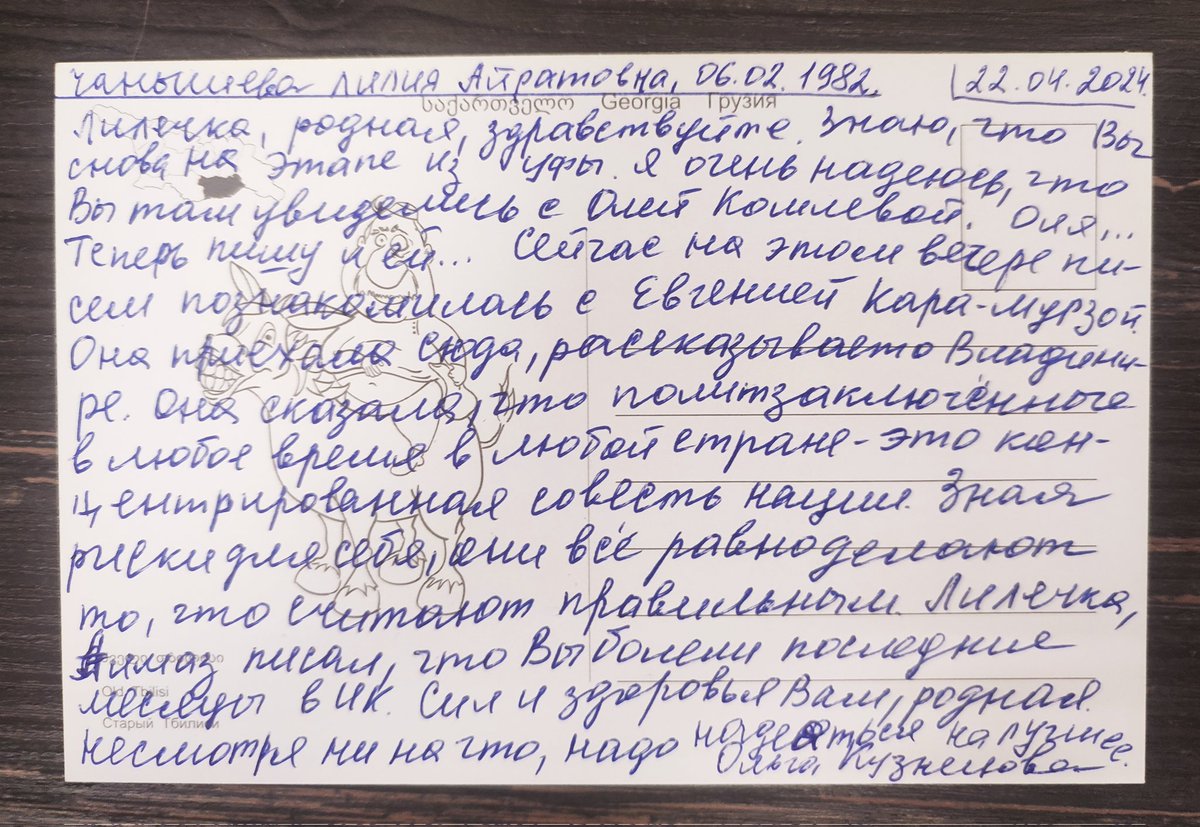 Чанышева Лилия Айратовна, 06.02.1982. 22.04.2024.
საქართველო Georgia Грузия
Лилечка, родная, здравствуйте. Знаю, что Вы
снова на этапе из Уфы. Я очень надеюсь, что
Вы там увиделись с Олей Комлевой. Оля...
Теперь пишу и ей... Сейчас на этом вечере пи-
сем познакомилась с Евгенией Кара-Мурзой.
Она приехала сюда, рассказывает о Владими-
ре. Она сказала, что политзаключённые
в любое время в любой стране - это кон-
центрированная совесть нации. Зная
риски для себя, они всё равно делают
то, что считают правильным. Лилечка,
Алмаз писал, что Вы болели последние
Old Tbilisi
месяцы в ИК. Сил и здоровья Вам, родная.
Старый Тбилиси
Несмотря ни на что, надо надеяться на лучшее.
Ольга Кузнецова